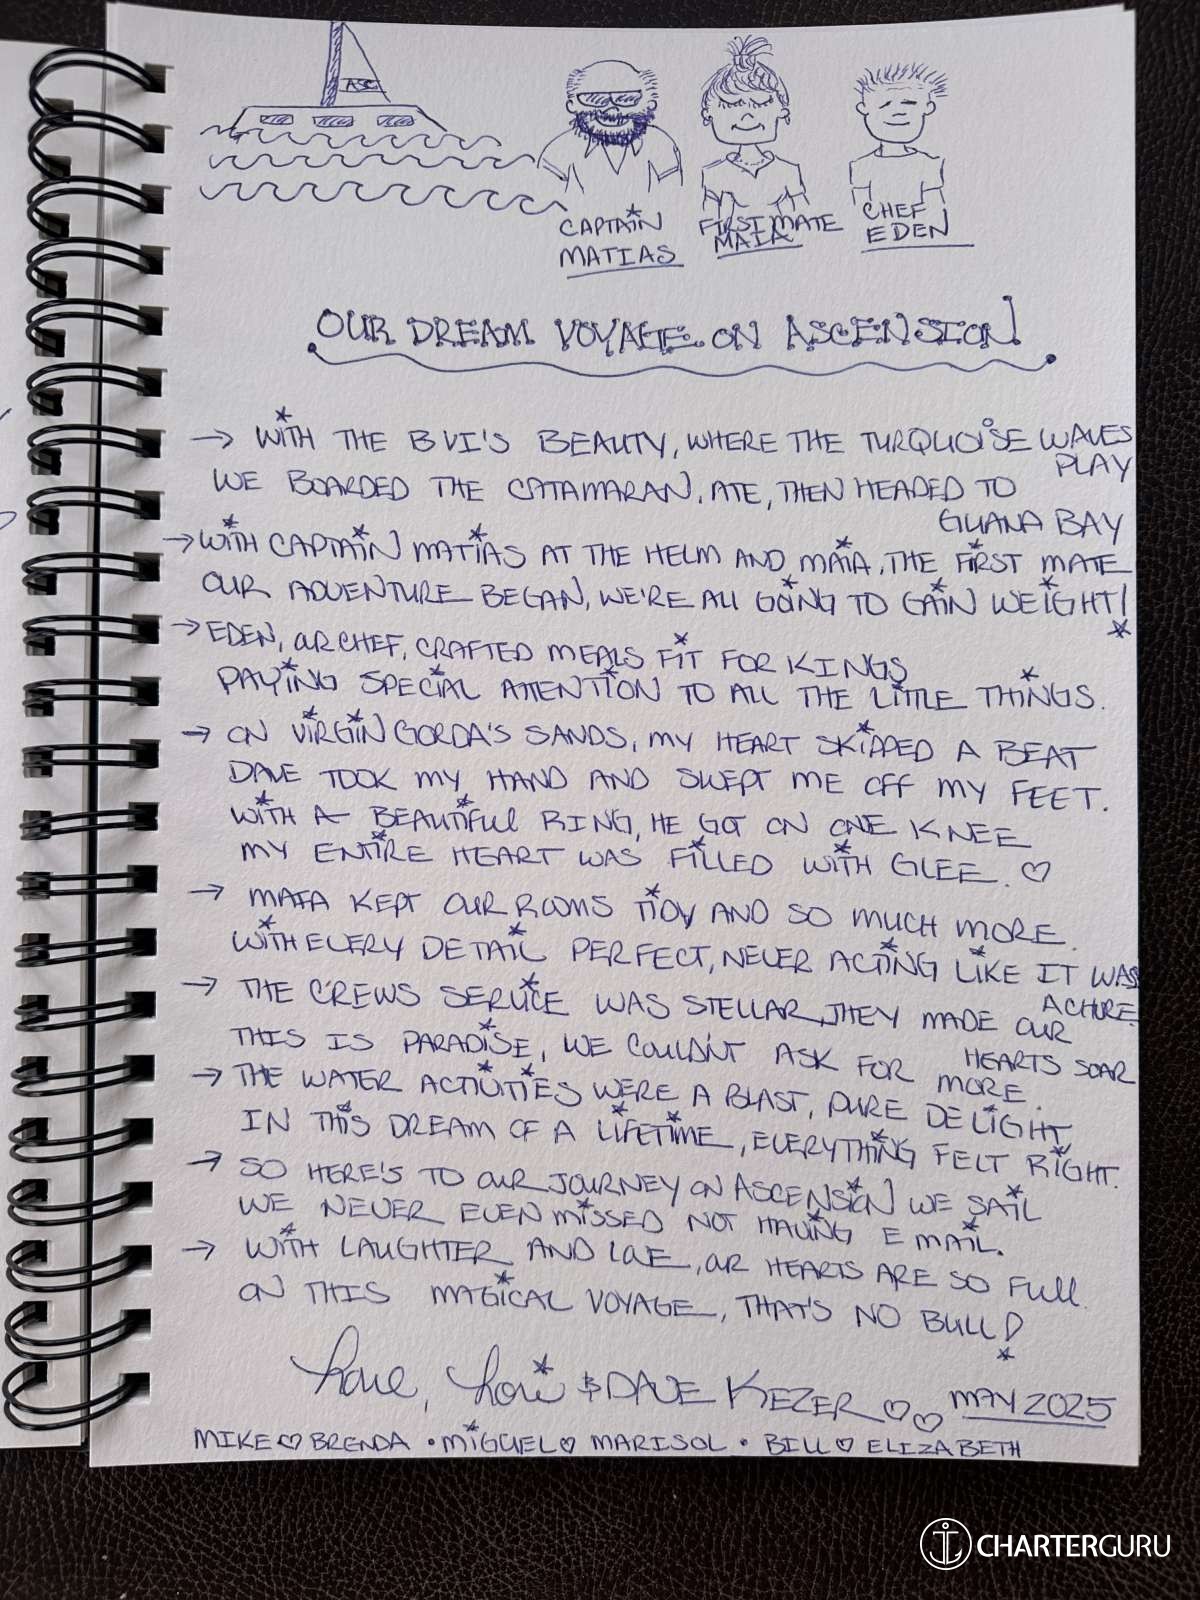 ASC
CAPTAIN
MATIAS
FIRST MATE
MAIA
CHEF
EDEN
OUR DREAM VOYAGE ON ASCENSION!
→ WITH THE BVI'S BEAUTY, WHERE THE TURQUOISE WAVES
PLAY
WE BOARDED THE CATAMARAN, ATE, THEN HEADED TO
GUANA BAY
→ WITH CAPTAIN MATIAS AT THE HELM AND MAIA, THE FIRST MATE
OUR ADVENTURE BEGAN, WE'RE ALL GOING TO GAIN WEIGHT!
→ EDEN, OUR CHEF, CRAFTED MEALS FIT FOR KINGS
PAYING SPECIAL ATTENTION TO ALL THE LITTLE THINGS.
→ ON VIRGIN GORDA'S SANDS, MY HEART SKIPPED A BEAT
DAVE TOOK MY HAND AND SWEPT ME OFF MY FEET.
WITH A BEAUTIFUL RING, HE GOT ON ONE KNEE
MY ENTIRE HEART WAS FILLED WITH GLEE. ♡
→ MAIA KEPT OUR ROOMS TIDY AND SO MUCH MORE.
WITH EVERY DETAIL PERFECT, NEVER ACTING LIKE IT WAS
A CHORE.
→ THE CREWS SERVICE WAS STELLAR, THEY MADE OUR
HEARTS SOAR
THIS IS PARADISE, WE COULDN'T ASK FOR
MORE.
→ THE WATER ACTIVITIES WERE A BLAST, PURE DELIGHT
IN THIS DREAM OF A LIFETIME, EVERYTHING FELT RIGHT.
→ SO HERE'S TO OUR JOURNEY ON ASCENSION WE SAIL
WE NEVER EVEN MISSED NOT HAVING EMAIL.
→ WITH LAUGHTER AND LOVE, OUR HEARTS ARE SO FULL.
ON THIS MAGICAL VOYAGE, THAT'S NO BULL!
Love, Lori & DAVE KEZER ♡♡ MAY 2025
MIKE ♡ BRENDA • MIGUEL ♡ MARISOL • BILL ♡ ELIZABETH
CHARTERGURU